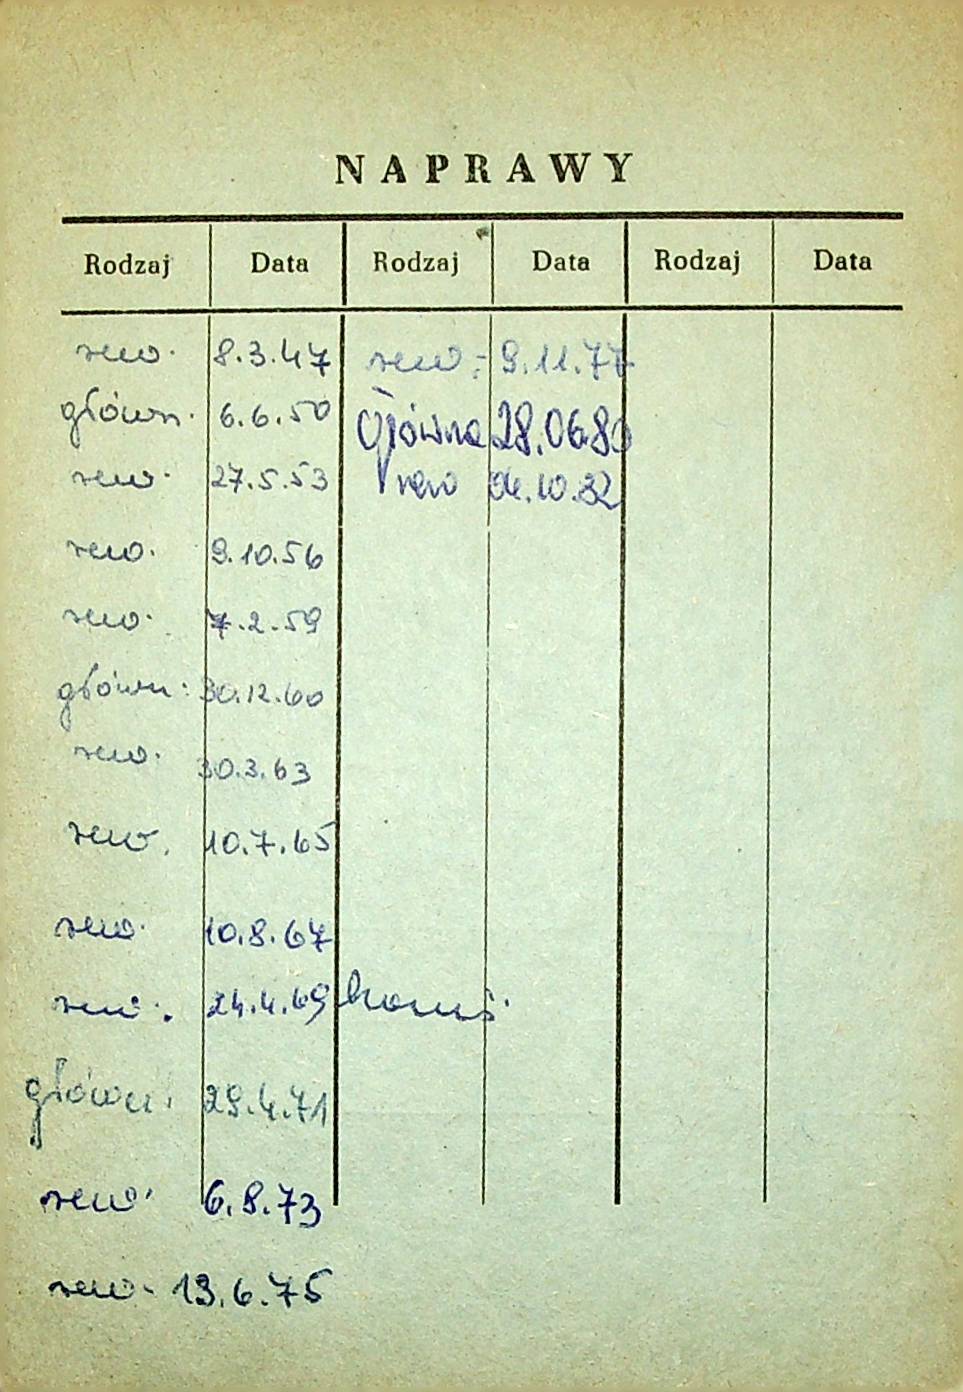 NAPRAWY
Rodzaj Data Rodzaj Data Rodzaj Data
rew. 8.3.47 rew. 9.11.77
główn. 6.6.50 Główna 28.06.80
rew. 27.5.53 rew 04.10.82
rew. 9.10.56
rew. 7.2.59
główn. 30.12.60
rew. 30.3.63
rew. 10.7.65
rew. 10.8.67
rew. 24.4.69
główn. 29.4.71
rew. 6.8.73
rew. 13.6.75